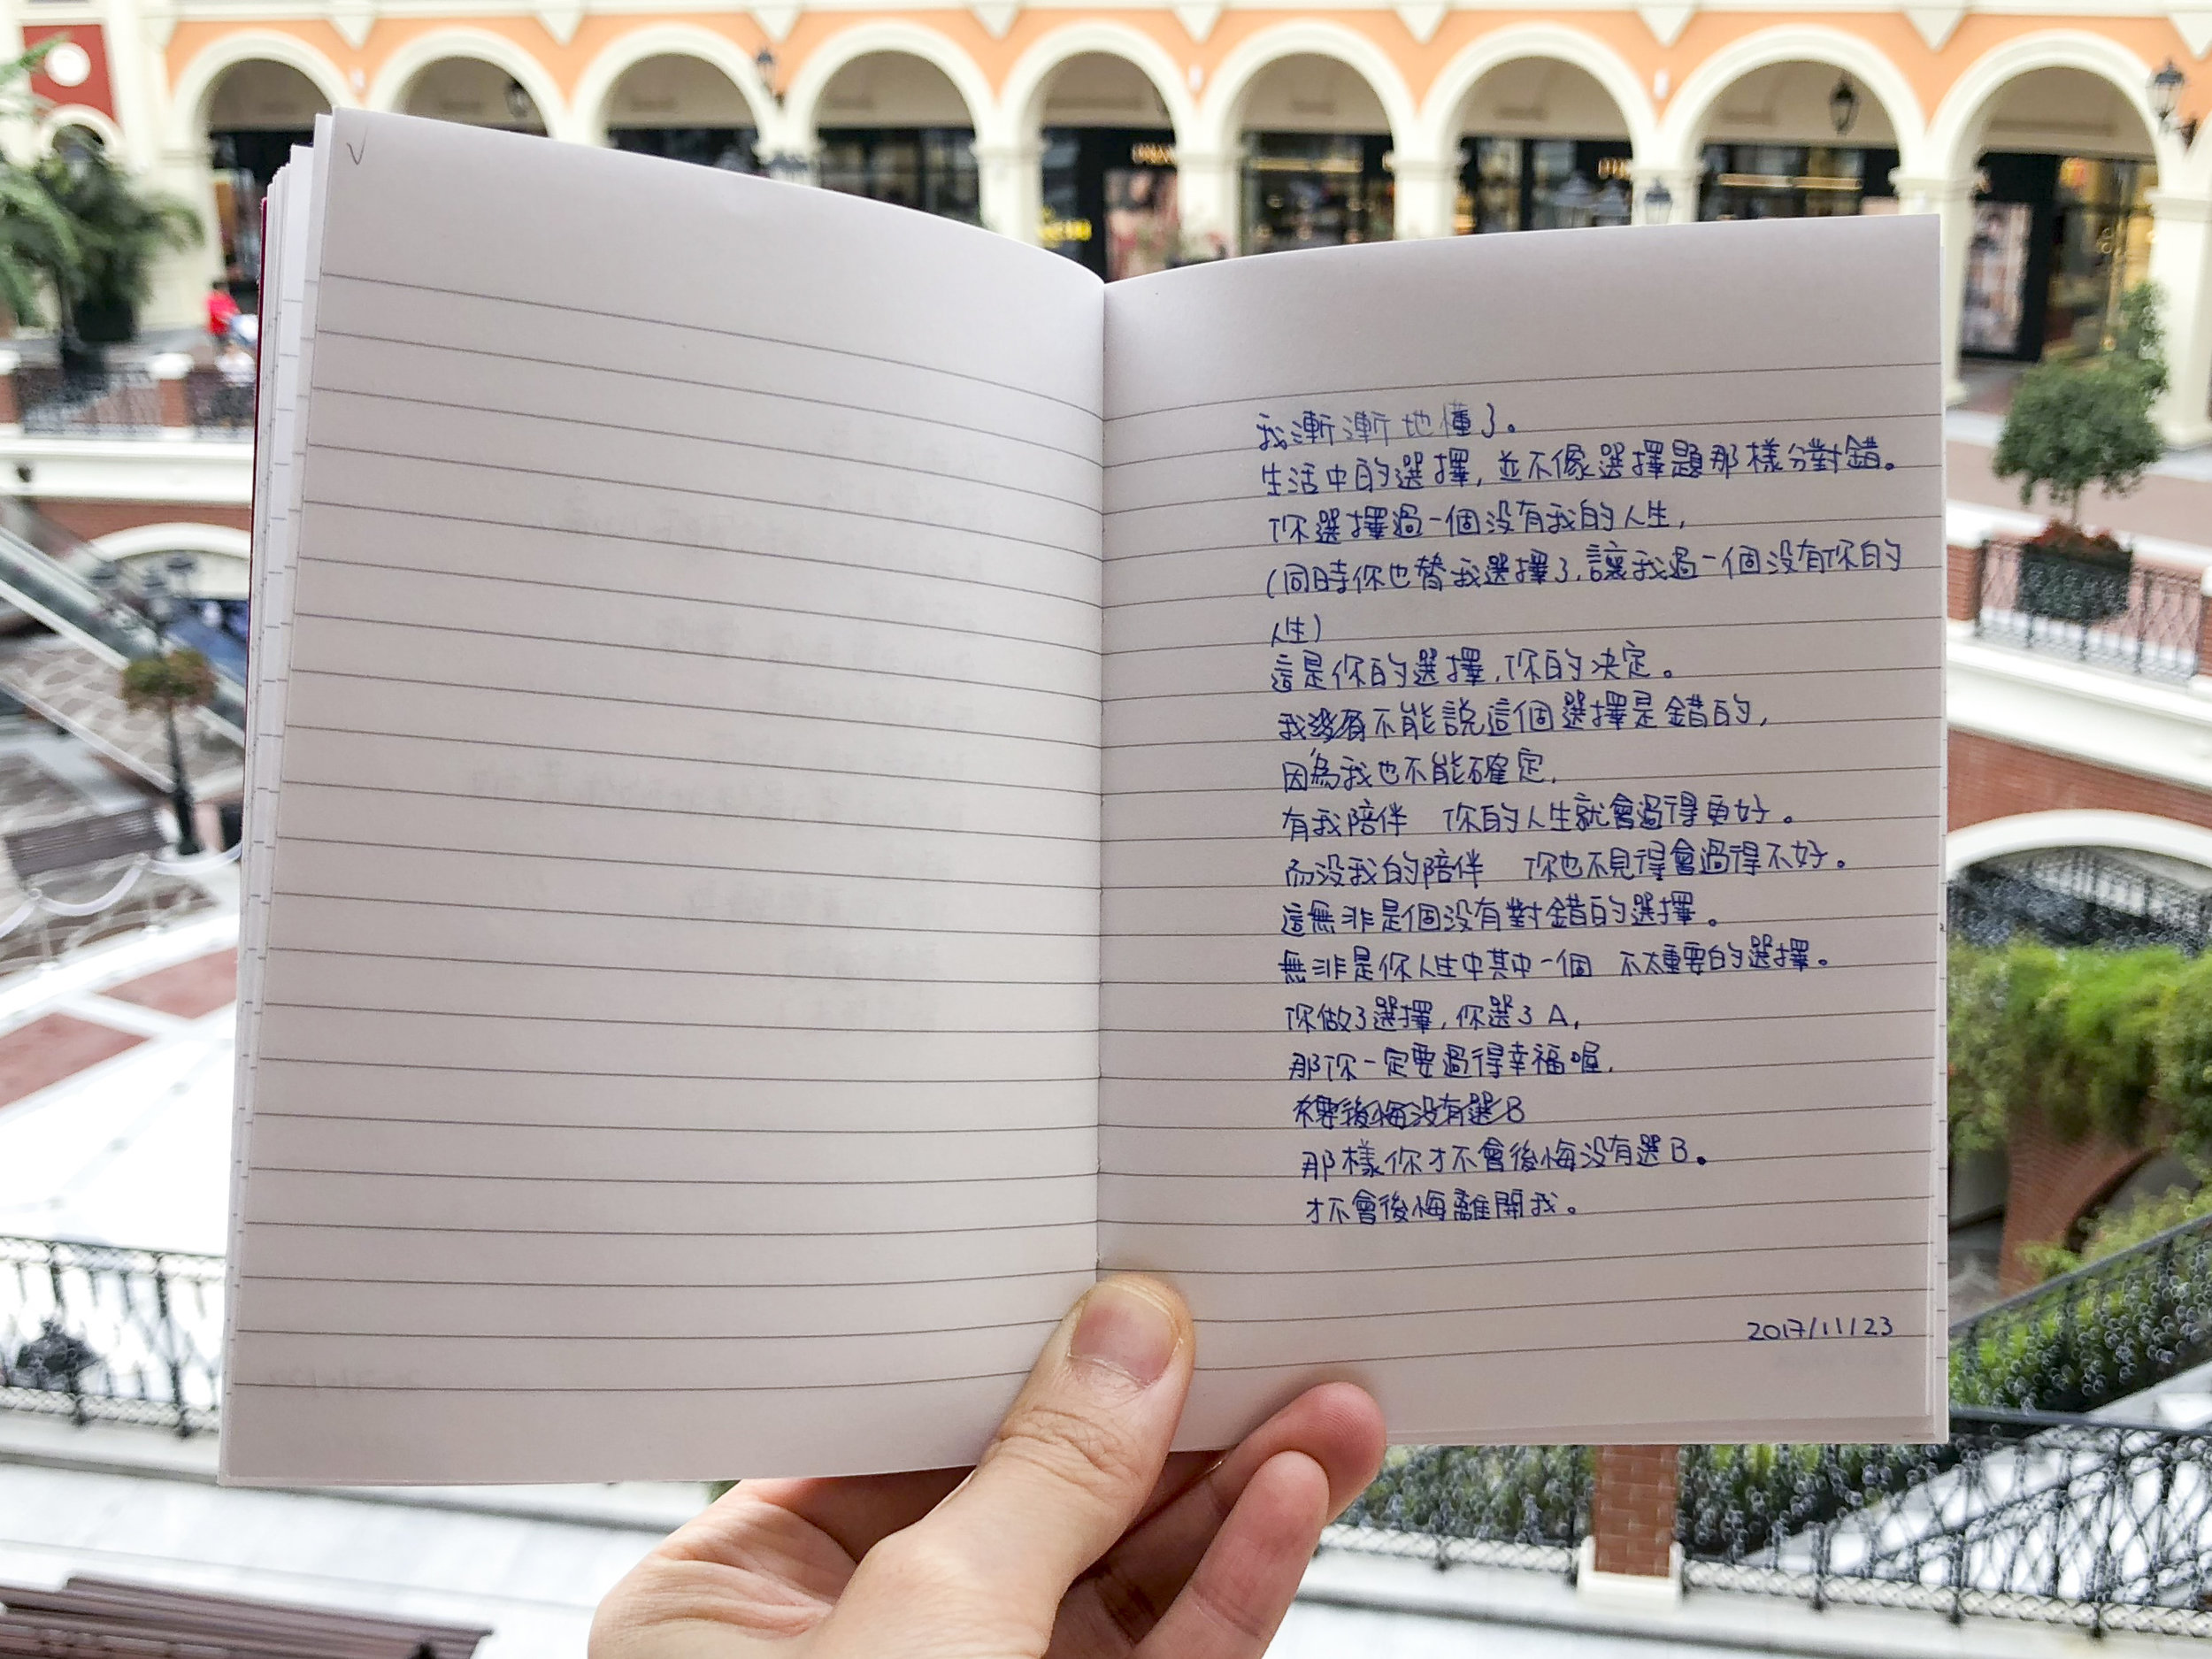 我漸漸地懂了。
生活中的選擇，並不像選擇題那樣分對錯。
你選擇過一個没有我的人生，
(同時你也替我選擇了，讓我過一個没有你的
人生)
這是你的選擇，你的决定。
我不能説這個選擇是錯的，
因為我也不能確定，
有我陪伴　你的人生就會過得更好。
而没我的陪伴　你也不見得會過得不好。
這無非是個没有對錯的選擇。
無非是你人生中其中一個　不太重要的選擇。
你做了選擇，你選了A，
那你一定要過得幸福喔，
後悔没有選B
那樣你才不會後悔没有選B。
才不會後悔離開我。
2017/11/23